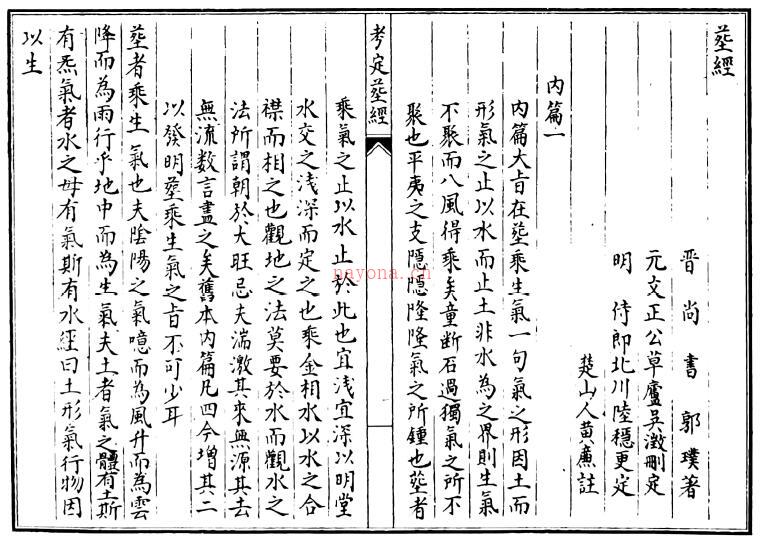 葬經
晋尚書郭璞著
元文正公草廬吳澂刪定
明侍郎北川陸穩更定
楚山人黄㢘註
内篇一
内篇大㫖在葬乘生氣一句氣之形因土而
形氣之止以水而止土非水為之界則生氣
不聚而八風得乘矣童斷石過獨氣之所不
聚也平夷之支隱隱隆隆氣之所鍾也葬者
考定葬經
乘氣之止以水止於此也宜淺宜深以明堂
水交之淺深而定之也乘金相水以水之合
襟而相之也觀地之法莫要於水而觀水之
法所謂朝於大旺忌夫湍激其來無源其去
無流数言盡之矣舊本内篇凡四今增其二
以發明葬乘生氣之㫖不可少耳
葬者乘生氣也夫陰陽之氣噫而為風升而為雲
降而為雨行乎地中而為生氣夫土者氣之體有土斯
有炁氣者水之母有氣斯有水經曰土形氣行物因
以生
nayona.cn